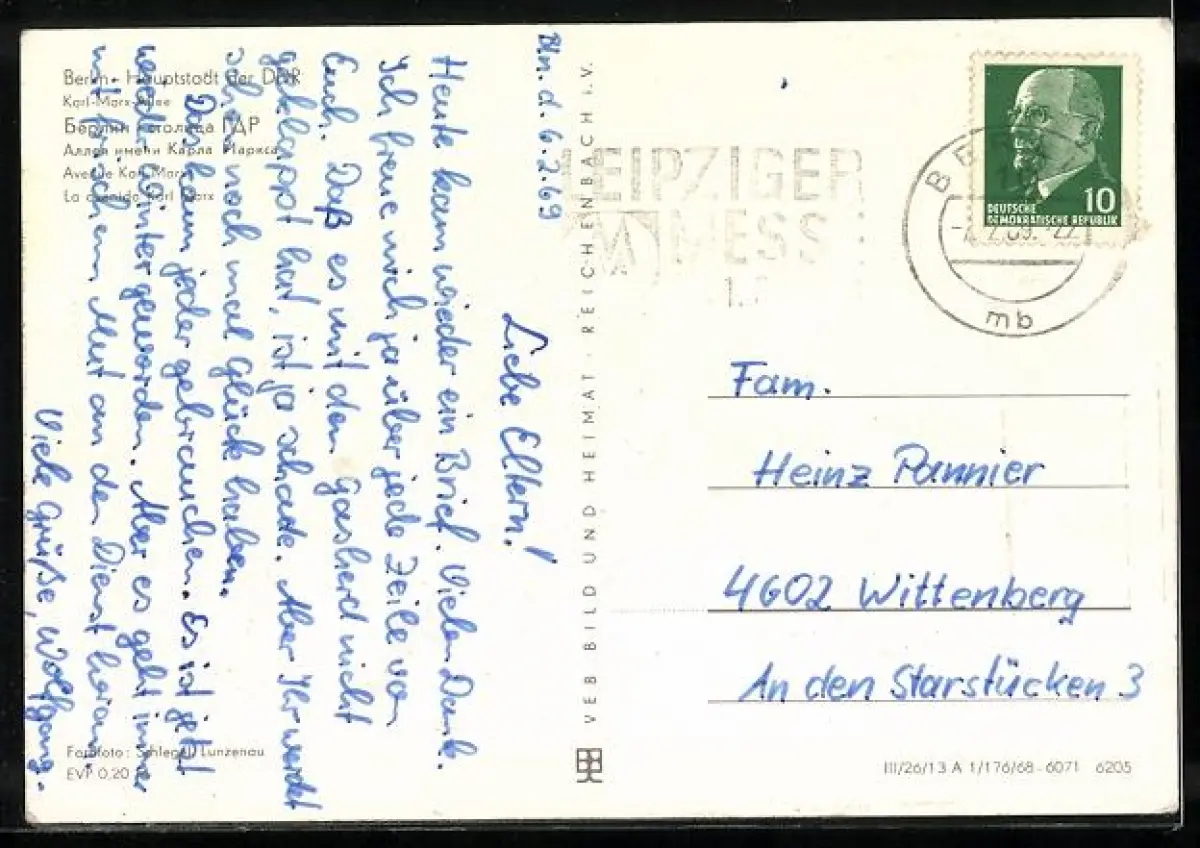 Berlin - Hauptstadt der DDR
Karl-Marx-Allee
Берлин - столица ГДР
Аллея имени Карла Маркса
Avenue Karl Marx
La avenida Karl Marx
Bln. d. 6.2.69
Liebe Eltern!
Heute kam wieder ein Brief. Vielen Dank.
Ich freue mich ja über jede Zeile von
Euch. Daß es mit dem Gasherd nicht
geklappt hat, ist ja schade. Aber Ihr werdet
schon noch mal Glück haben.
Das kann jeder gebrauchen. Es ist jetzt
wieder Winter geworden. Aber es geht immer
mit frischem Mut an den Dienst heran.
Viele Grüße, Wolfgang.
Farbfoto: Schlegel, Lunzenau
EVP 0,20
VEB BILD UND HEIMAT · REICHENBACH i. V.
LEIPZIGER
MESSE
DEUTSCHE
DEMOKRATISCHE REPUBLIK
10
mb
Fam.
Heinz Pannier
4602 Wittenberg
An den Starstücken 3
III/26/13 A 1/176/68-6071 6205